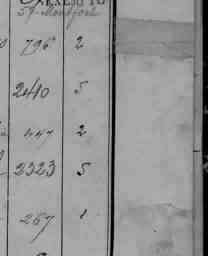 59 Montfort
796 2
2410 5
447 2
2323 5
267 1